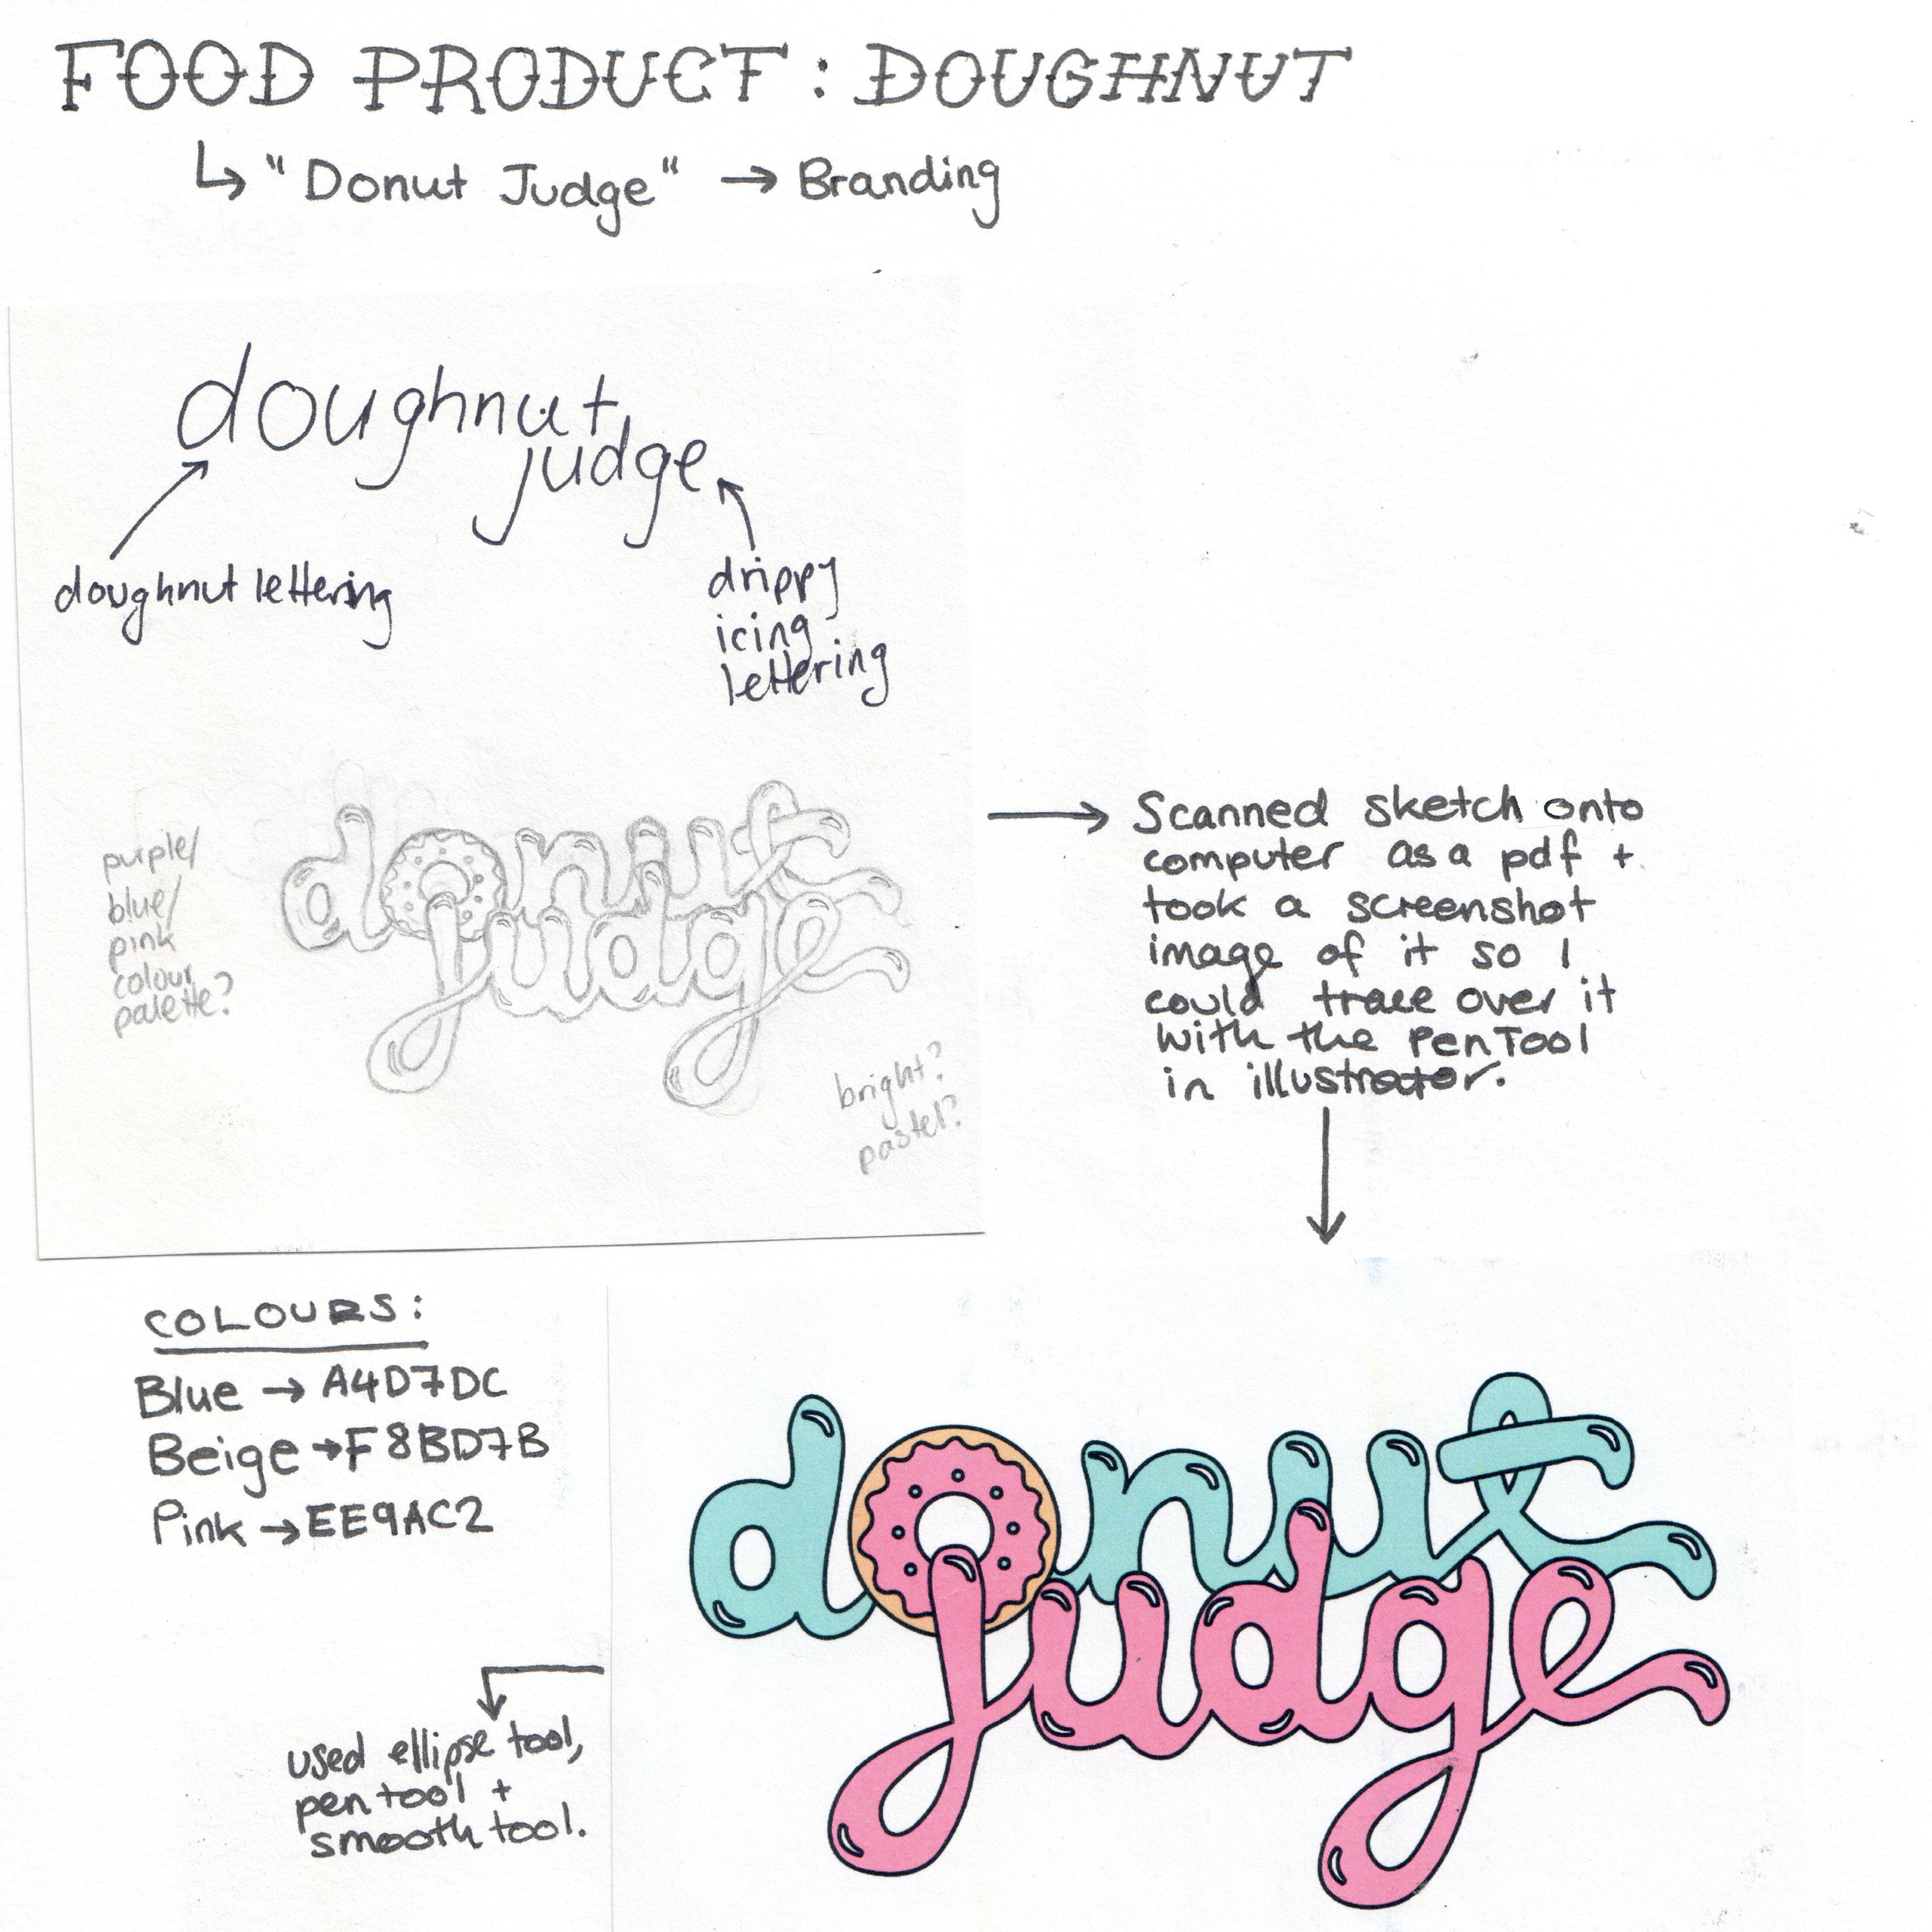 FOOD PRODUCT : DOUGHNUT
↳ "Donut Judge" → Branding
doughnut
judge
doughnut lettering
drippy
icing
lettering
donut
judge
purple/
blue/
pink
colour
palette?
bright?
pastel?
→ Scanned sketch onto
computer as a pdf +
took a screenshot
image of it so I
could trace over it
with the PenTool
in illustrator.
COLOURS:
Blue → A4D7DC
Beige → F8BD7B
Pink → EE9AC2
donut
judge
used ellipse tool,
pen tool +
smooth tool.